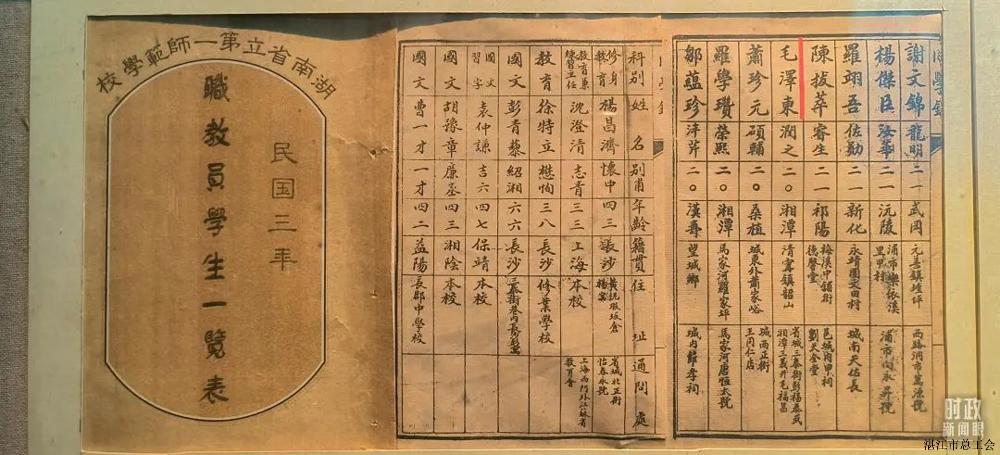 湖南省立第一師範學校
民国三年
職教員學生一覽表
科別 姓名 別甫 年齡 籍貫 住址 通問處
修身教育 楊昌濟 懷中 四三 長沙
沈澄清 志青 三三 上海 本校
教育 徐特立 懋恂 三八 長沙 修業學校
國文 彭青藜 紹湘 六六 長沙
國文習字 袁仲謙 吉六 四七 保靖 本校
國文 胡豫章 廉丞 四三 湘陰 本校
國文 曹一才 一才 四二 益陽 長郡中學校
謝文錦 龍明 二一 武岡
楊傑臣 汝華 二一 沅陵
羅翊吾 佐勳 二一 新化 永靖團文田村 城南天佑長
陳拔萃 睿生 二一 祁陽 梅溪中鋪街德馨堂 邑城内甲祠劉天金堂
毛澤東 潤之 二〇 湘潭 清溪鎮韶山
蕭珍元 碩輔 二〇 桑植 城東外蕭家峪 城西正街王同仁店
羅學瓚 榮熙 二〇 湘潭 馬家河羅家坪 馬家河唐恒太號
鄒蘊珍 泮芹 二〇 漢壽 望城鄉
时政
新闻眼
湛江市总工会